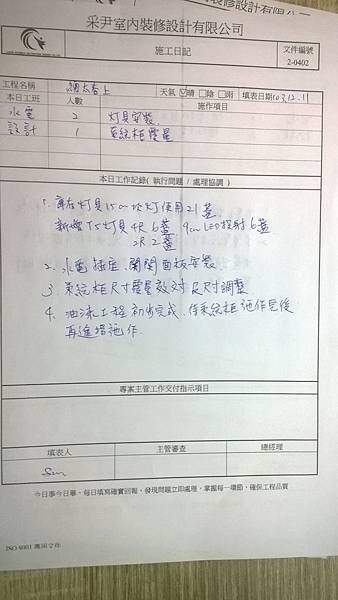 采尹室內裝修設計有限公司
施工日記
文件編號
2-0402
工程名稱
天氣 晴 陰 雨
填表日期 103.12.11
本日工班 人數 施作項目
水電 2 灯具安裝
設計 1 系統柜電量
本日工作記錄( 執行問題 / 處理協調 )
新增 T5灯具 4R 6盞 9cm LED投射 6盞
2R 2盞
2. 水電插座、開關面板安裝
3. 系統柜尺寸電量校对 及尺寸調整
4. 油漆工程初步完成,待系統柜施作完後
再進場施作.
專案主管工作交付指示項目
填表人 主管審查 總經理
Sun
今日事今日畢,每日填寫確實回報,發現問題立即處理,掌握每一環節,確保工程品質
ISO 9001